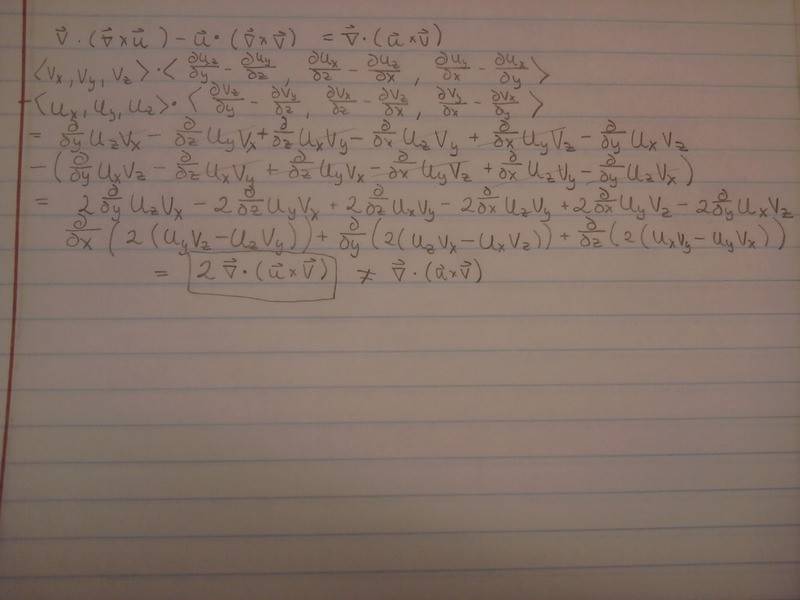 v⃗ · (∇⃗ × u⃗) − u⃗ · (∇⃗ × v⃗) = ∇⃗ · (u⃗ × v⃗)
⟨v_x, v_y, v_z⟩ · ⟨∂u_z/∂y − ∂u_y/∂z, ∂u_x/∂z − ∂u_z/∂x, ∂u_y/∂x − ∂u_x/∂y⟩
−⟨u_x, u_y, u_z⟩ · ⟨∂v_z/∂y − ∂v_y/∂z, ∂v_x/∂z − ∂v_z/∂x, ∂v_y/∂x − ∂v_x/∂y⟩
= ∂/∂y u_z v_x − ∂/∂z u_y v_x + ∂/∂z u_x v_y − ∂/∂x u_z v_y + ∂/∂x u_y v_z − ∂/∂y u_x v_z
−(∂/∂y u_x v_z − ∂/∂z u_x v_y + ∂/∂z u_y v_x − ∂/∂x u_y v_z + ∂/∂x u_z v_y − ∂/∂y u_z v_x)
= 2 ∂/∂y u_z v_x − 2 ∂/∂z u_y v_x + 2 ∂/∂z u_x v_y − 2 ∂/∂x u_z v_y + 2 ∂/∂x u_y v_z − 2 ∂/∂y u_x v_z
∂/∂x (2(u_y v_z − u_z v_y)) + ∂/∂y (2(u_z v_x − u_x v_z)) + ∂/∂z (2(u_x v_y − u_y v_x))
= 2 ∇⃗ · (u⃗ × v⃗) ≠ ∇⃗ · (u⃗ × v⃗)